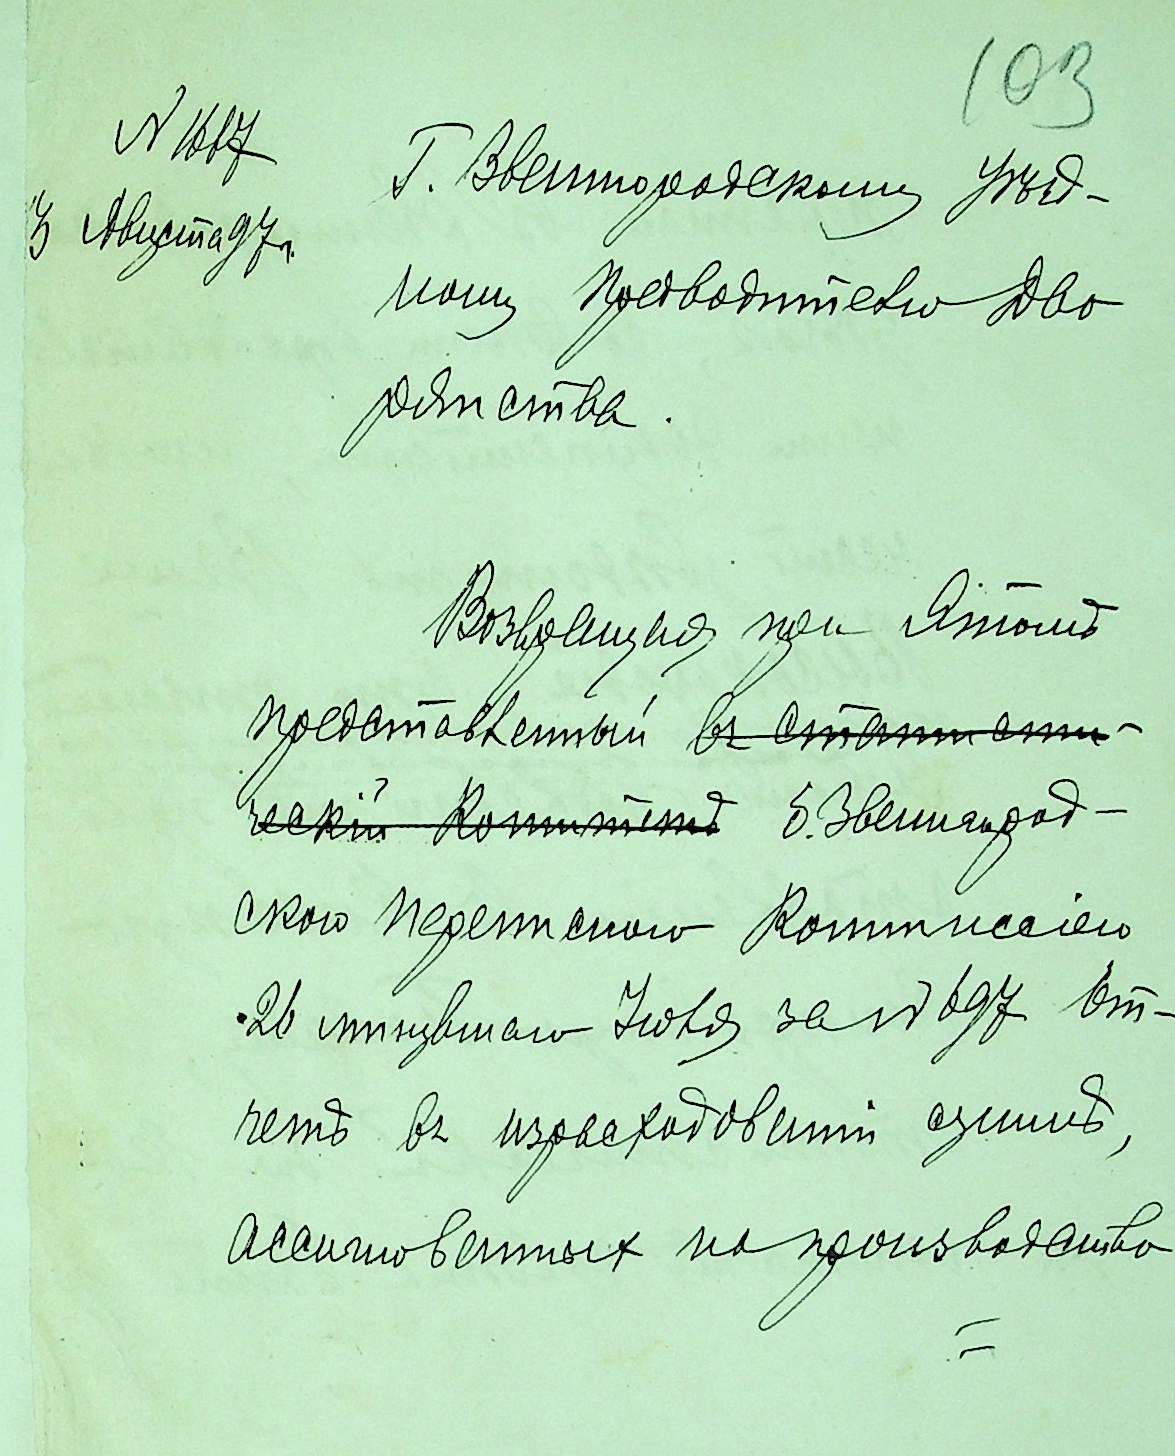 103
N 1667
3 Августа 97 г.
Г. Звенигородскому Уѣзд-
ному Предводителю Дво
рянства.
Возвращая при этомъ
представленный въ статисти-
ческій Комитетъ б. Звенигород-
скою Переписною Коммиссіею
26 минувшаго Іюля за N 697 От-
четъ въ израсходованіи суммъ,
ассигнованных на производство